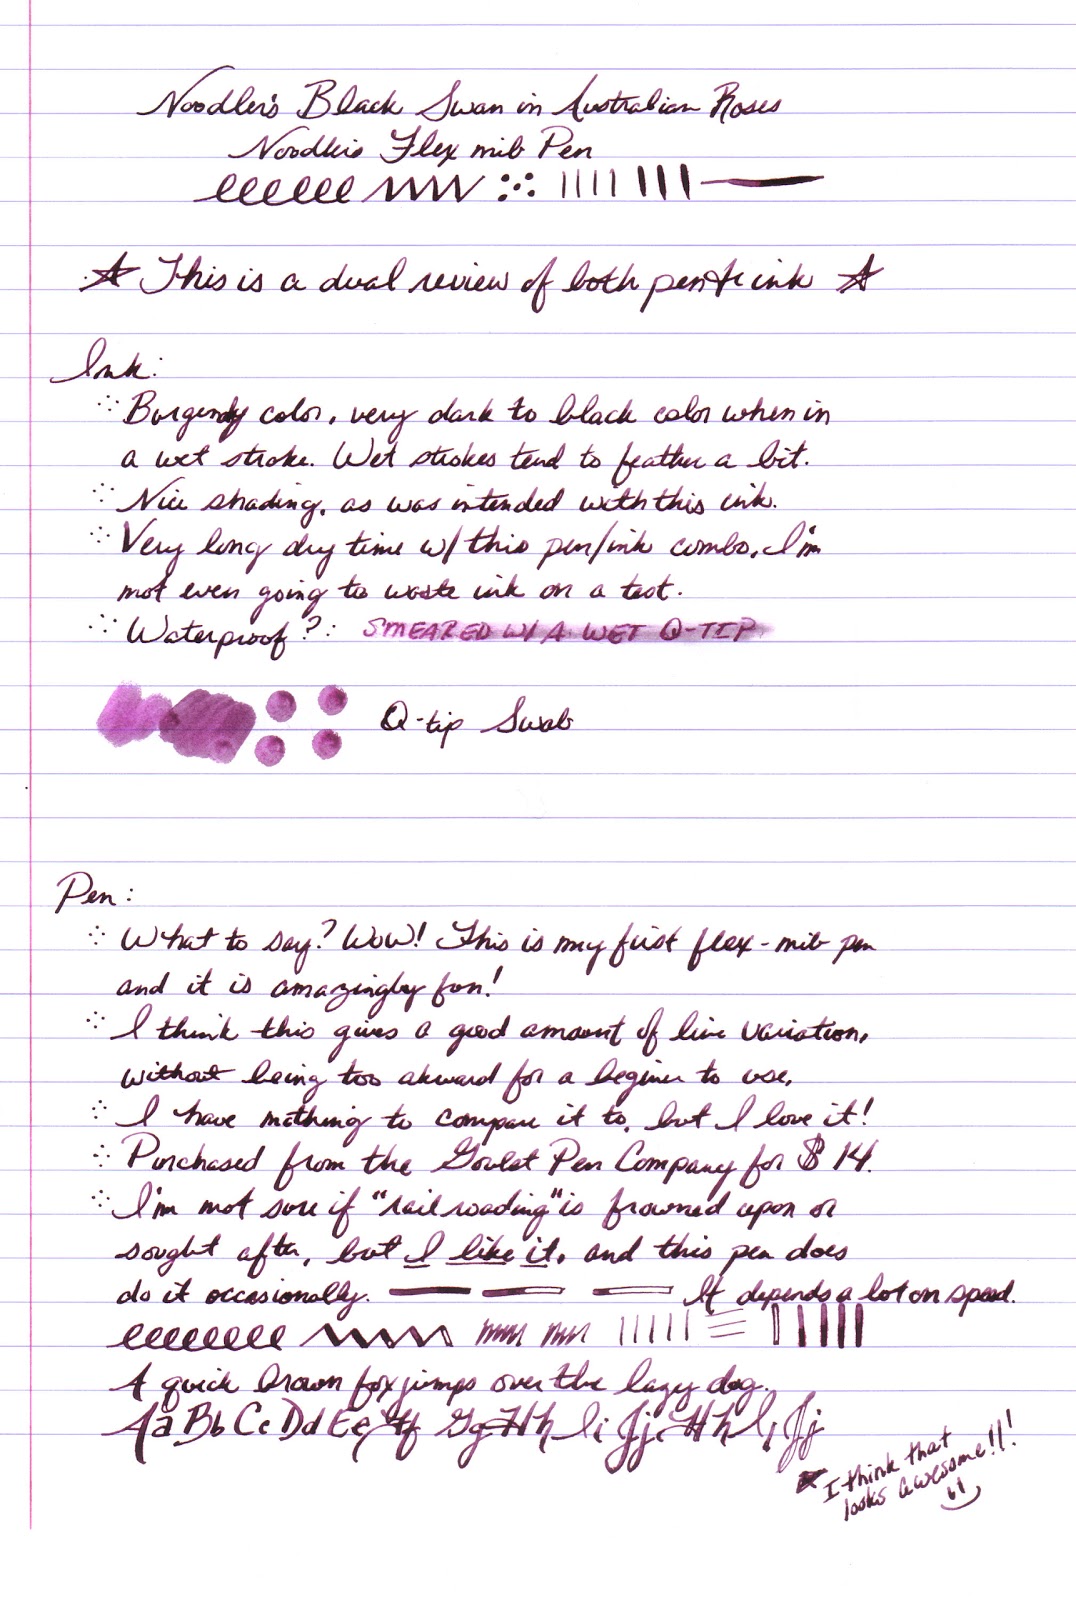 Noodler's Black Swan in Australian Roses
Noodler's Flex nib Pen
This is a dual review of both pen & ink
Ink:
Burgundy color, very dark to black color when in
a wet stroke. Wet strokes tend to feather a bit.
Nice shading, as was intended with this ink.
Very long dry time w/ this pen/ink combo, I'm
not even going to waste ink on a test.
Waterproof?: SMEARED W/ A WET Q-TIP
Q-tip Swab
Pen:
What to say? WOW! This is my first flex-nib pen
and it is amazingly fun!
I think this gives a good amount of line variation,
without being too akward for a beginer to use.
I have nothing to compare it to, but I love it!
Purchased from the Goulet Pen Company for $14.
I'm not sure if "railroading" is frowned upon or
sought after, but I like it, and this pen does
do it occasionally. It depends a lot on speed.
A quick brown fox jumps over the lazy dog.
Aa Bb Cc Dd Ee Ff Gg Hh Ii Jj Hh Ii Jj
I think that
looks awesome!!!